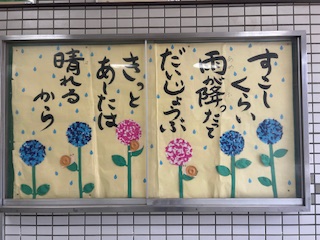 すこし
くらい
雨が降ったって
だいじょうぶ
きっと
あしたは
晴れる
から